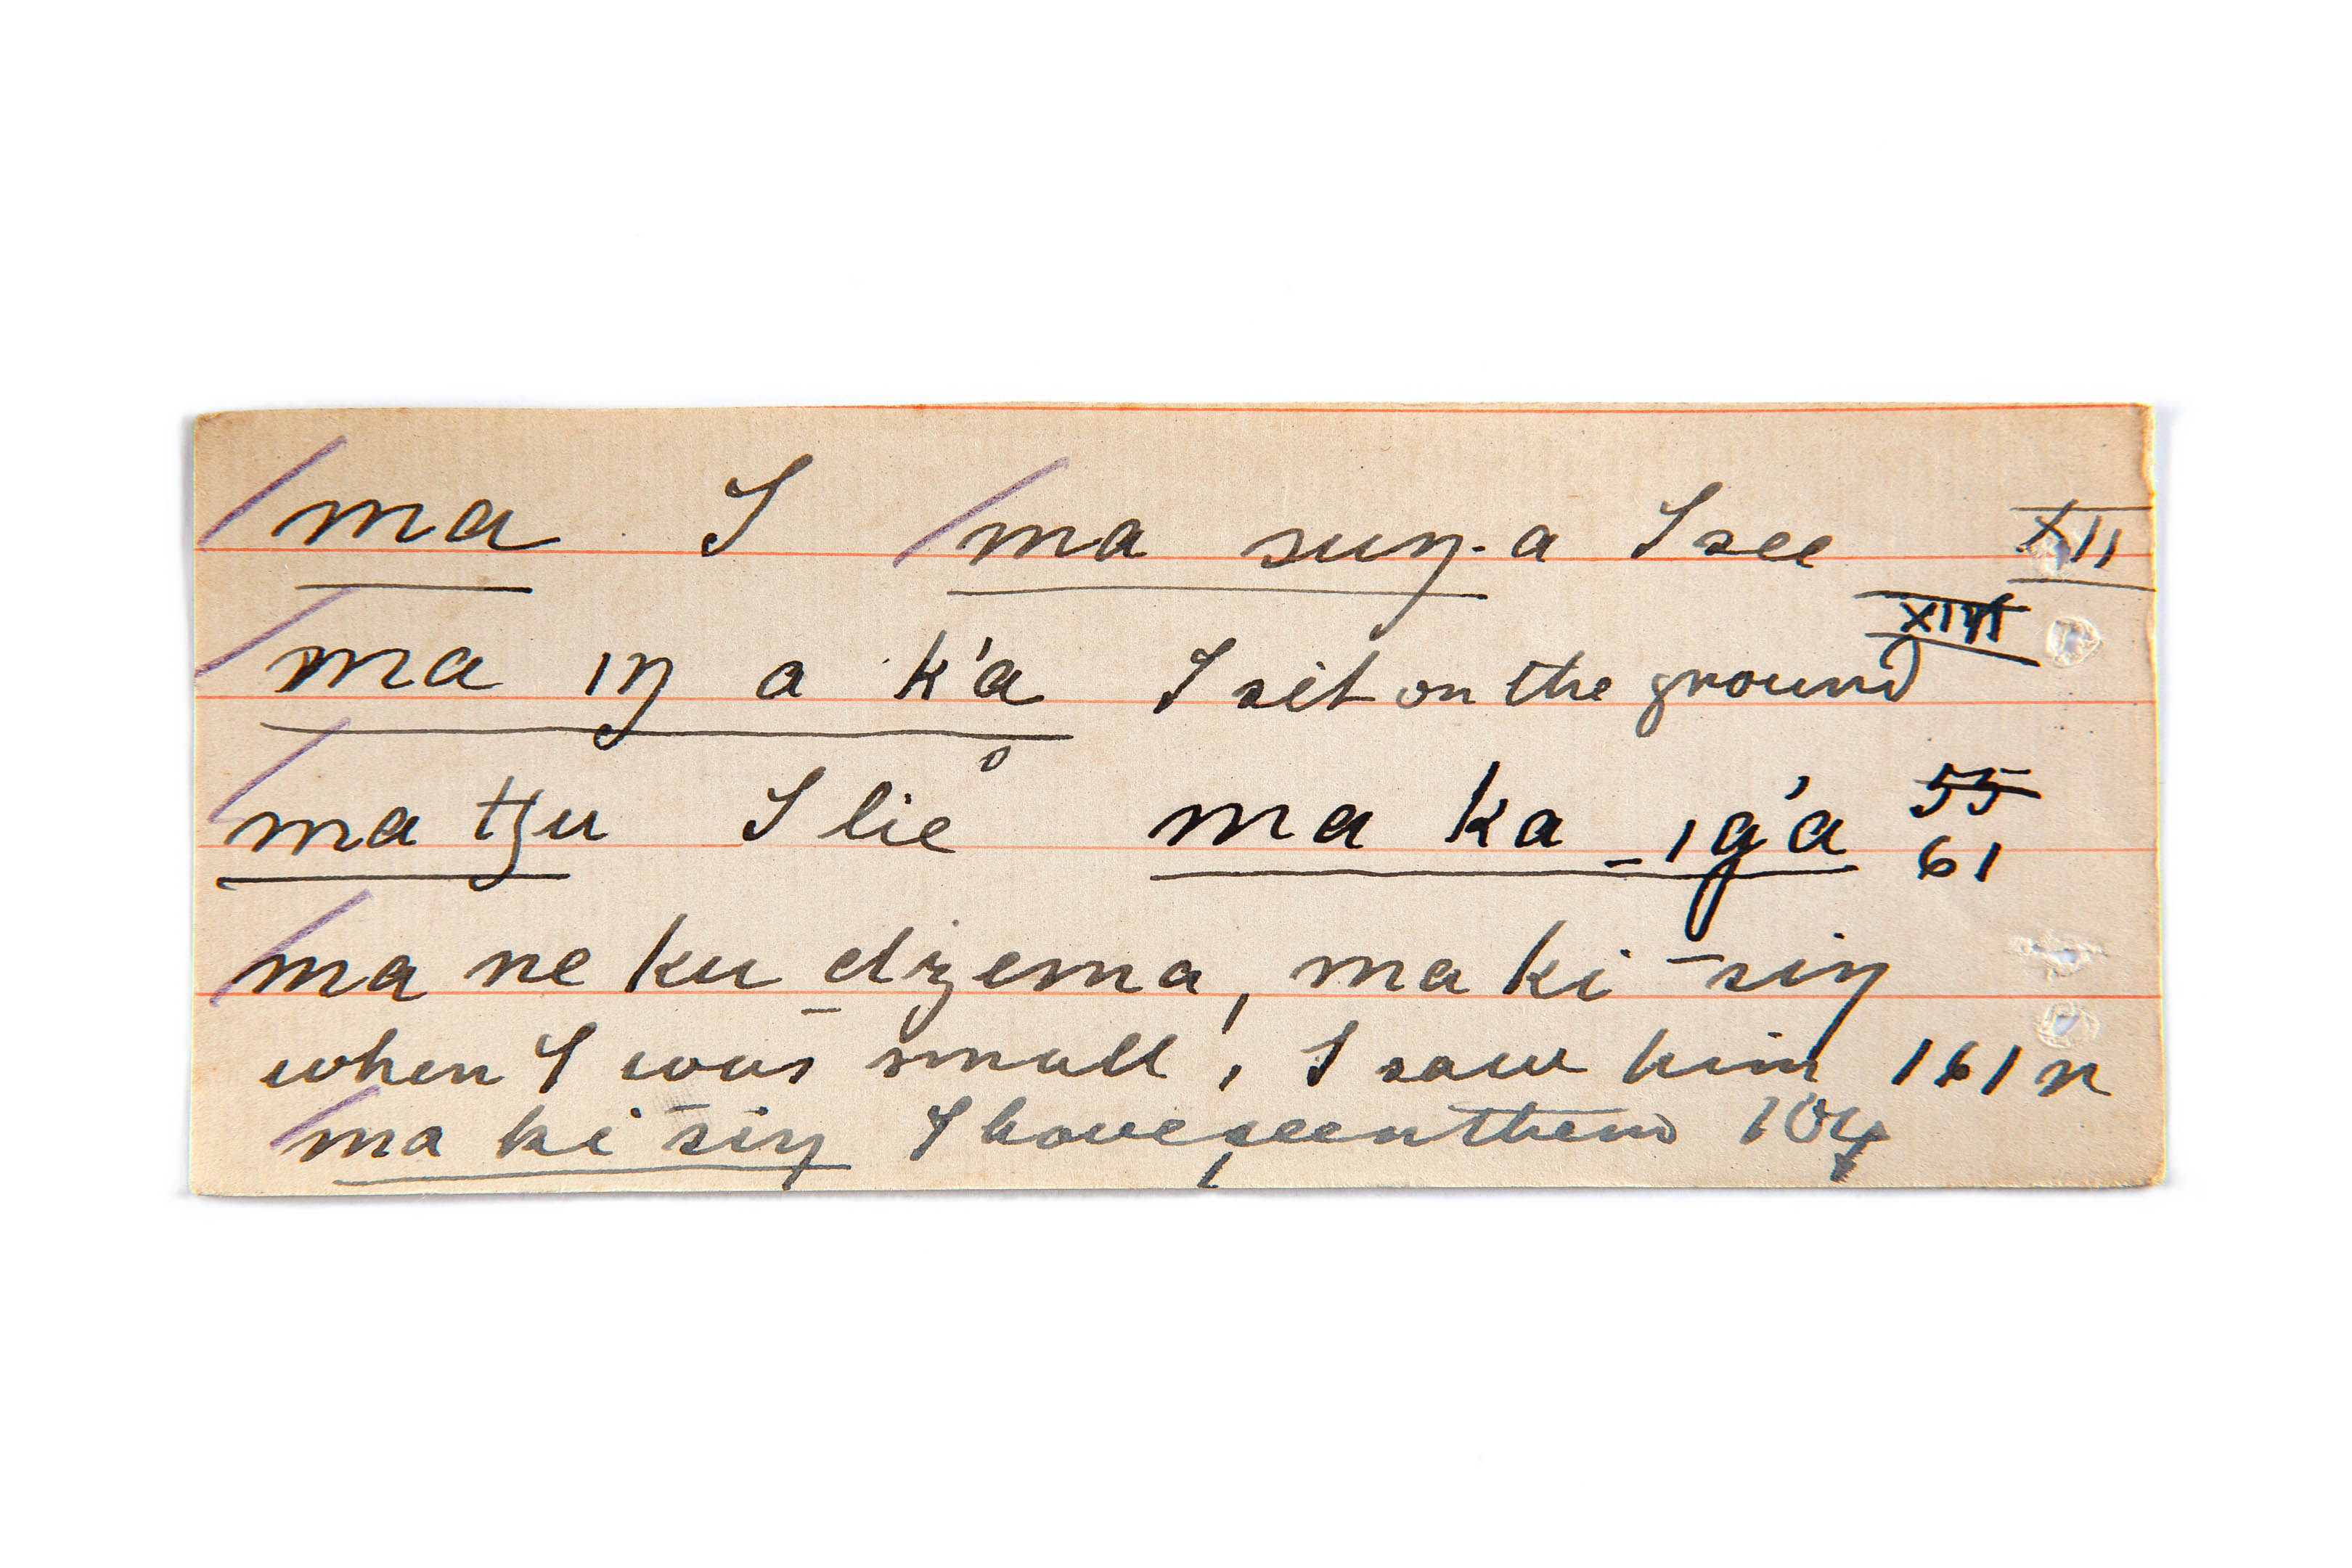 ma I ma suŋ·a I see XII
ma ıŋ a k'a I sit on the ground XIII
ma tʒu I lie ma ka _ ıg'a 55 61
ma ne ku _ dʒema, ma ki ‾siŋ
when I was small, I saw him 161 n
ma ki ‾siŋ I have seen them